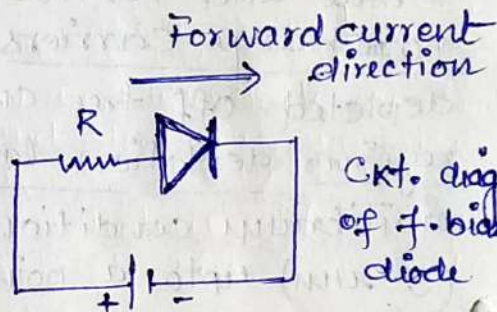 Forward current
direction
R
Ckt. diag
of f. bia
diode
+ -